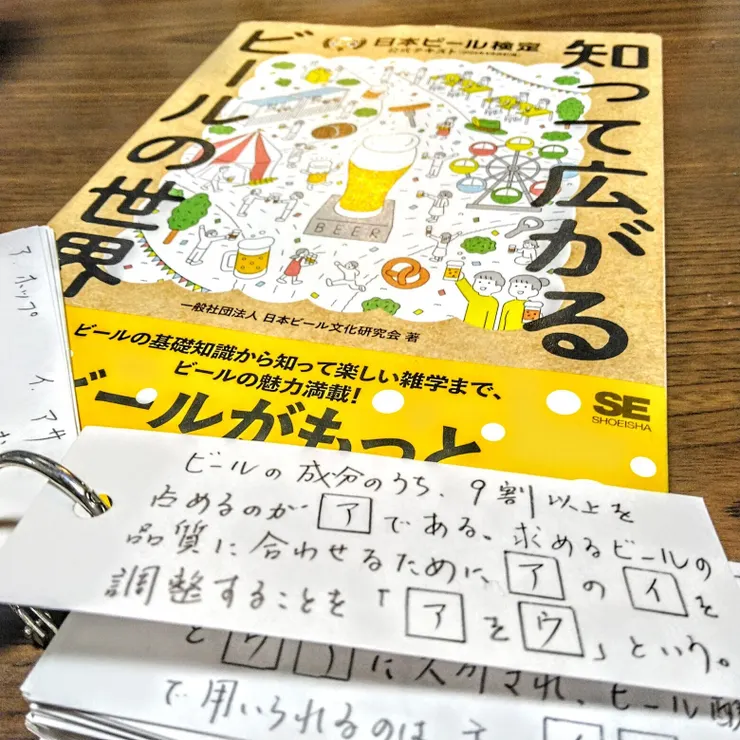 日本ビール検定
公式テキスト
知って広がる
ビールの世界
BEER
一般社団法人 日本ビール文化研究会 著
ビールの基礎知識から知って楽しい雑学まで、
ビールの魅力満載!
ビールがもっと
SE
SHOEISHA
ア.ホップ
イ.アサ
ビールの成分のうち、9割以上を
占めるのが ア である。求めるビールの
品質に合わせるために、ア の イ を
調整することを「 ア を ウ 」という。
で用いられるのは、